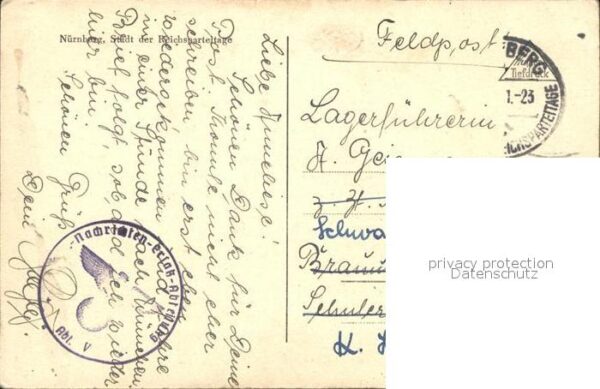 Nürnberg, Stadt der Reichsparteitage
Liebe Anneliese!
Schönen Dank für Deine
Post. Konnte nicht eher
schreiben bin erst
wiedergekommen und fahre
in einer Stunde nach München.
Brief folgt, sobald ich wieder
hier bin.
Schönen Gruß
Dein
Nachrichten-Ersatz-Abteilung
Abt. V
Feldpost!
BERG
1.-23
REICHSPARTEITAGE
Lagerführerin
A. Gei
z. Zt.
Schwa
Braun
Schuler
K.
privacy protection
Datenschutz